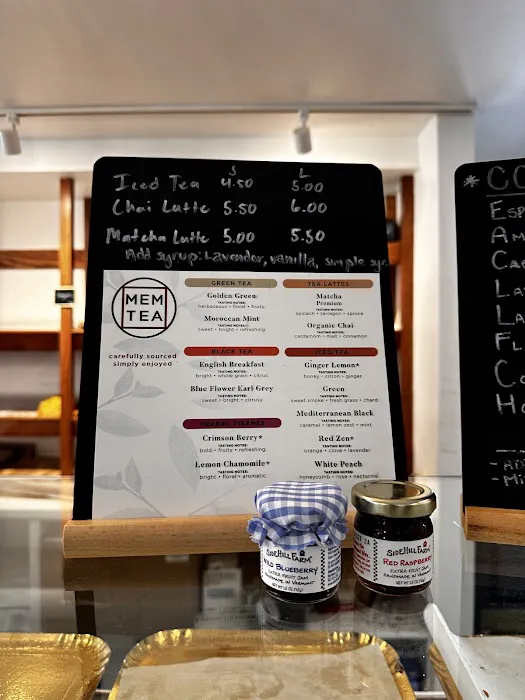 S L
Iced Tea 4.50 5.00
Chai Latte 5.50 6.00
Matcha Latte 5.00 5.50
Add syrup: Lavender, vanilla, simple syr.
MEM
TEA
carefully sourced
simply enjoyed
GREEN TEA
Golden Green
TASTING NOTES:
herbaceous • floral • fruity
Moroccan Mint
TASTING NOTES:
sweet • bright • refreshing
BLACK TEA
English Breakfast
TASTING NOTES:
bright • whole grain • citrus
Blue Flower Earl Grey
TASTING NOTES:
sweet • bright • citrusy
HERBAL TISANES
Crimson Berry*
TASTING NOTES:
bold • fruity • refreshing
Lemon Chamomile*
TASTING NOTES:
bright • floral • aromatic
TEA LATTES
Matcha
Premium
TASTING NOTES:
spinach • tarragon • spruce
Organic Chai
TASTING NOTES:
cardamom • malt • cinnamon
ICED TEA
Ginger Lemon*
TASTING NOTES:
honey • citron • ginger
Green
TASTING NOTES:
sweet smoke • fresh grass • chard
Mediterranean Black
TASTING NOTES:
caramel • lemon zest • mint
Red Zen*
TASTING NOTES:
orange • clove • lavender
White Peach
TASTING NOTES:
honeycomb • rose • nectarine
* CO
ESP
AM
CA
LA
LA
FL
C
Ho
SIDEHILL FARM
WILD BLUEBERRY
EXTRA FRUIT JAM
HANDMADE IN VERMONT
SIDEHILL FARM
RED RASPBERRY
EXTRA FRUIT JAM
HANDMADE IN VERMONT